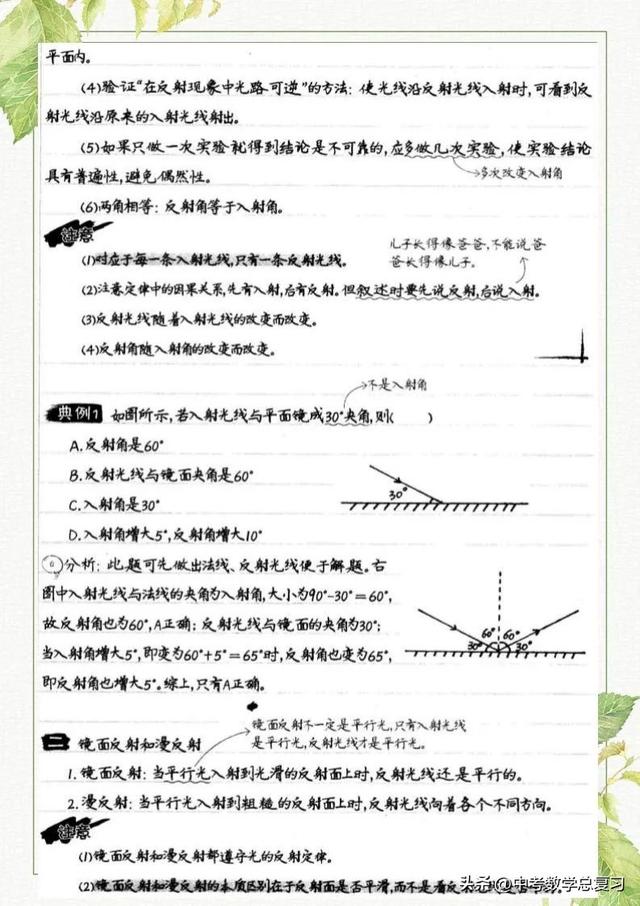 平面内。
(4)验证“在反射现象中光路可逆”的方法：使光线沿反射光线入射时，可看到反
射光线沿原来的入射光线射出。
(5)如果只做一次实验就得到结论是不可靠的，应多做几次实验，使实验结论
具有普遍性，避免偶然性。
多次改变入射角
(6)两角相等：反射角等于入射角。
注意
儿子长得像爸爸，不能说爸
爸长得像儿子。
(1)对应于每一条入射光线，只有一条反射光线。
(2)注意定律中的因果关系，先有入射，后有反射。但叙述时要先说反射，后说入射。
(3)反射光线随着入射光线的改变而改变。
(4)反射角随入射角的改变而改变。
不是入射角
典例1 如图所示，若入射光线与平面镜成30°夹角，则( )
A.反射角是60°
B.反射光线与镜面夹角是60°
C.入射角是30°
D.入射角增大5°，反射角增大10°
30°
分析：此题可先做出法线、反射光线便于解题。右
图中入射光线与法线的夹角为入射角，大小为90°-30°=60°，
故反射角也为60°，A正确；反射光线与镜面的夹角为30°；
当入射角增大5°，即变为60°+5°=65°时，反射角也变为65°，
即反射角也增大5°。综上，只有A正确。
60° 60°
30° 30°
镜面反射不一定是平行光，只有入射光线
是平行光，反射光线才是平行光。
二 镜面反射和漫反射
1.镜面反射：当平行光入射到光滑的反射面上时，反射光线还是平行的。
2.漫反射：当平行光入射到粗糙的反射面上时，反射光线向着各个不同方向。
注意
(1)镜面反射和漫反射都遵守光的反射定律。
(2)镜面反射和漫反射的本质区别在于反射面是否平滑，而不是看反
头条@中考数学总复习